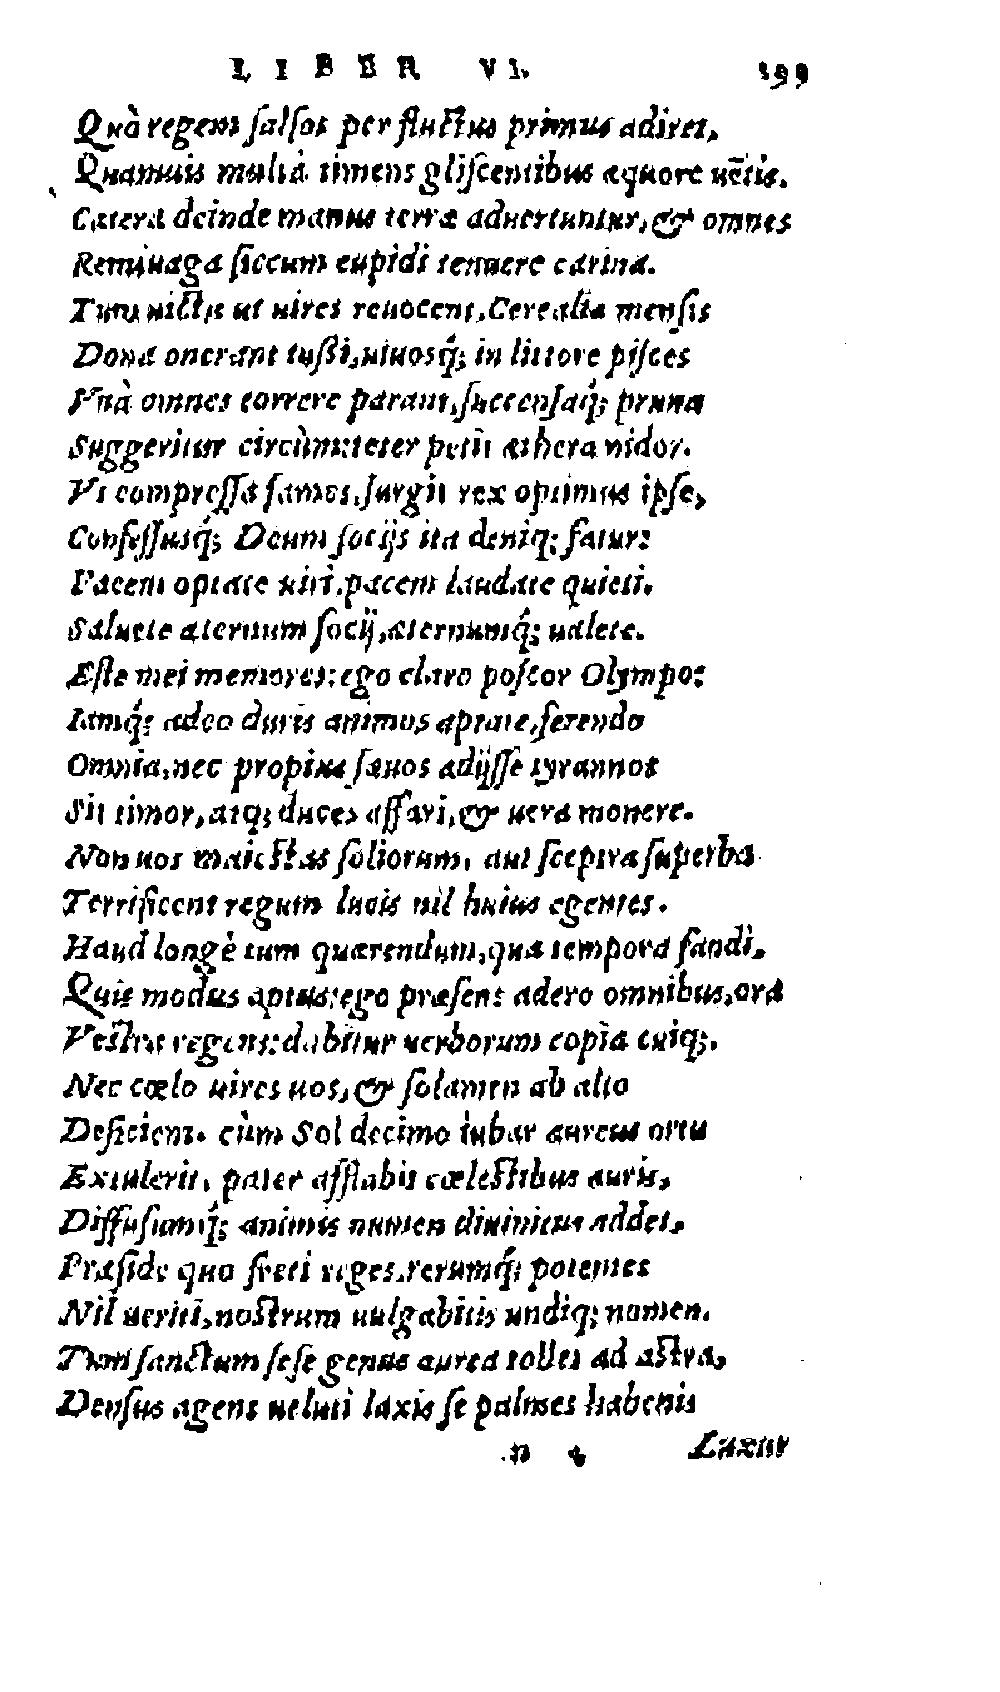 LIBER VI. 199
Quà regem salsos per fluctus primus adiret,
Quamuis multa timens gliscentibus æquore uētis.
Cætera deinde manus terræ aduertuntur, & omnes
Remiuaga siccum cupidi tenuere carina.
Tum uictu ut uires reuocent, Cerealia mensis
Dona onerant tusti, uiuosq́; in littore pisces
Vnà omnes torrere parant, succensaq́; pruna
Suggeritur circùm: teter petit æthera nidor.
Vt compressa fames, surgit rex optimus ipse,
Confessusq́; Deum socijs ita deniq; fatur:
Pacem optate uiri, pacem laudate quieti.
Saluete æternum socij, æternumq́; ualete.
Este mei memores: ego claro poscor Olympo:
Iamq́; adeo duris animus aptate, ferendo
Omnia, nec propius sæuos adijsse tyrannos
Sit timor, atq; duces affari, & uera monere.
Non uos maiestas soliorum, aut sceptra superba
Terrificent regum lucis nil huius egentes.
Haud longè tum quærendum, quæ tempora fandi,
Quis modus aptus: ego præsens adero omnibus, ora
Vestra regens: dabitur uerborum copia cuiq;.
Nec cœlo uires uos, & solamen ab alto
Deficient. cùm Sol decimo iubar aureus ortu
Extulerit, pater afflabit cœlestibus auris,
Diffusumq́; animis numen diuinitus addet,
Præside quo freti reges, rerumq́; potentes
Nil ueriti, nostrum uulgabitis undiq; nomen.
Tum sanctum sese genus aurea tollet ad astra,
Densus agens ueluti laxis se palmes habenis
n 4 Luxur